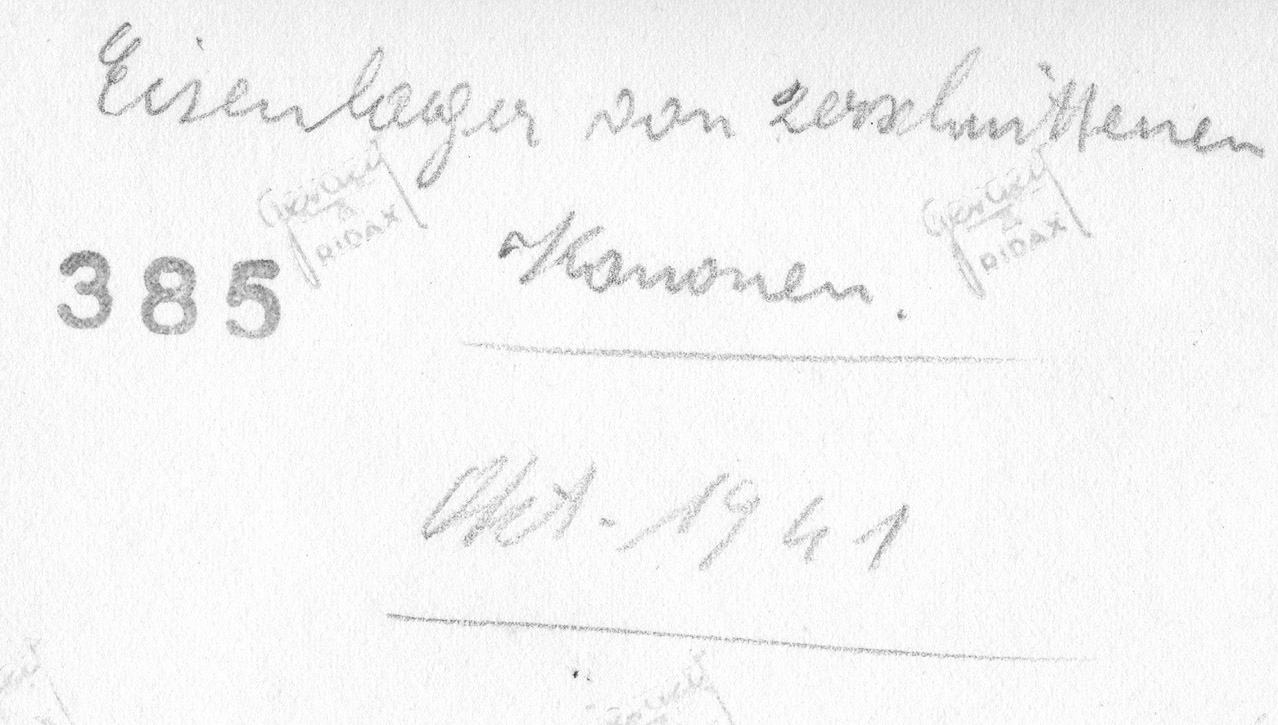 Eisenlager von zerschnittenen
385 Kanonen.
Okt. 1941
Gevaert
RIDAX
Gevaert
RIDAX
Gevaert